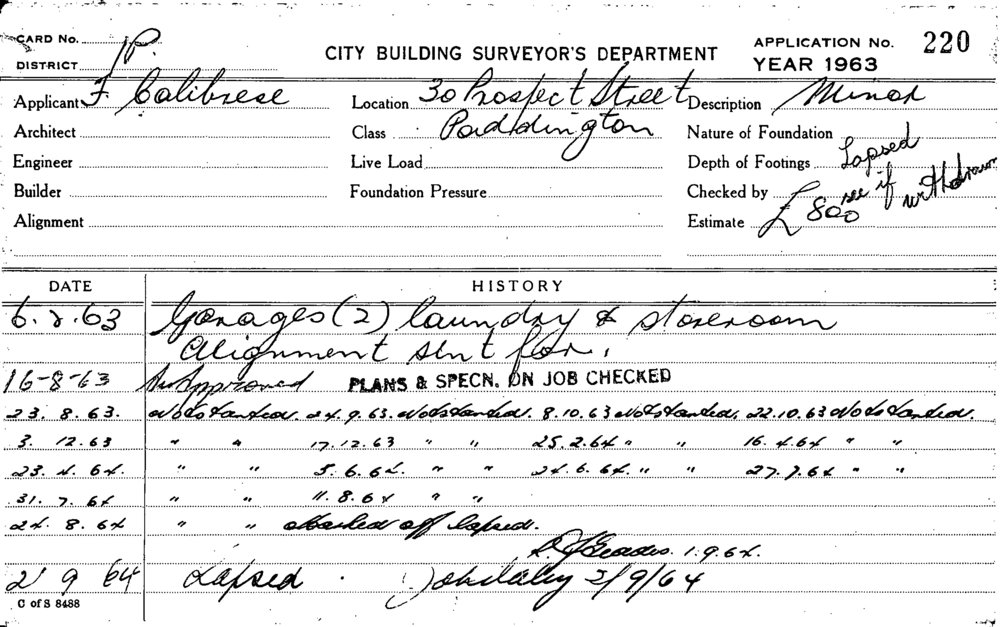 CARD No.
DISTRICT P.
CITY BUILDING SURVEYOR'S DEPARTMENT
APPLICATION No. 220
YEAR 1963
Applicant F Calibrese
Location 30 Prospect Street
Description Minor
Architect
Class Paddington
Nature of Foundation
Engineer
Live Load
Depth of Footings Lapsed
Builder
Foundation Pressure
Checked by see if withdrawn
Alignment
Estimate £800
DATE HISTORY
6.2.63 Garages (2) laundry & storeroom
Alignment sent for.
16-8-63 Approved PLANS & SPECN. ON JOB CHECKED
23. 8. 63. Not started. 24.9.63. Not started. 8.10.63 Not started. 22.10.63 Not started.
3. 12.63 " " 17.12.63 " " 25.2.64 " " 16.4.64 " "
23. 4. 64. " " 5.6.64. " " 24.6.64. " " 27.7.64 " "
31. 7. 64 " " 11.8.64 " "
24. 8. 64 " " Marked off lapsed.
1.9.64.
2 9 64 Lapsed. 2/9/64
C of S 8488